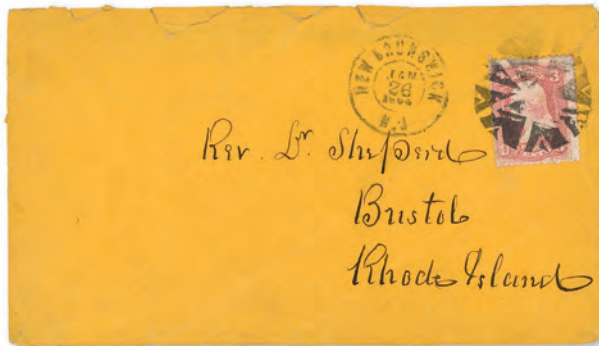 NEW BRUNSWICK
JAN
26
N.J
3
Rev. Dr. Sheperd
Bristol
Rhode Island